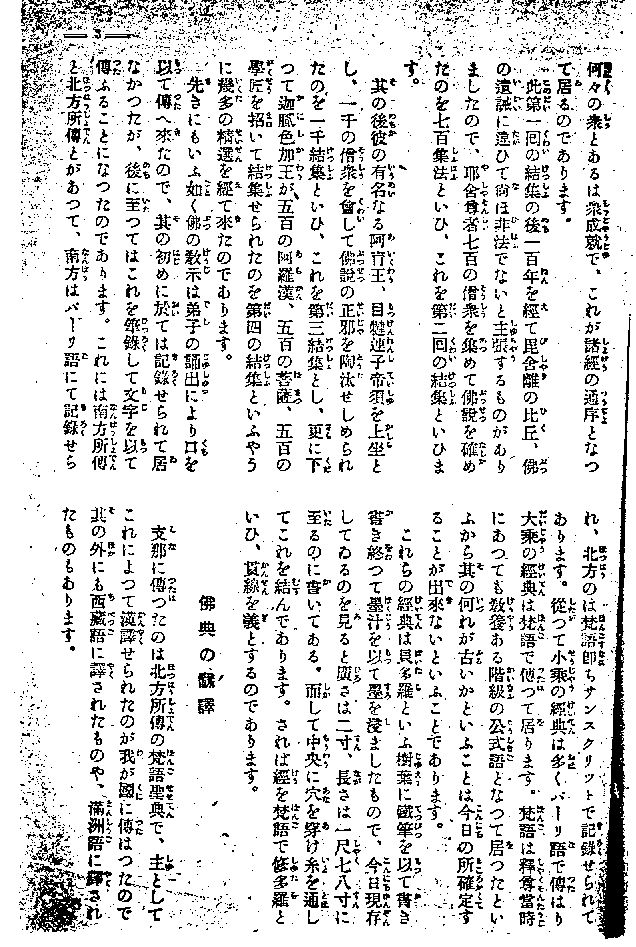 3
何々の衆とあるは衆成就で、これが諸經の通序となつ
て居るのであります。
此第一回の結集の後一百年を經て毘舍離の比丘、佛
の遺誡に違ひて尙ほ非法でないと主張するものがあり
ましたので、耶舍尊者七百の僧衆を集めて佛說を確め
たのを七百集法といひ、これを第二回の結集といひま
す。
其の後彼の有名なる阿育王、目犍連子帝須を上坐と
し、一千の僧衆を會して佛說の正邪を陶汰せしめられ
たのを一千結集といひ、これを第三結集とし、更に下
つて迦膩色加王が五百の阿羅漢、五百の菩薩、五百の
學匠を招いて結集せられたのを第四の結集といふやう
に幾多の精選を經て來たのであります。
先きにもいふ如く佛の敎示は弟子の誦出により口を
以て傳へ來たので、其の初めに於ては記錄せられて居
なかつたが、後に至つてはこれを筆錄して文字を以て
傳ふることになつたのであります。これには南方所傳
と北方所傳とがあつて、南方はパーリ語にて記錄せら
れ、北方のは梵語卽ちサンスクリットで記錄せられて
あります。從つて小乘の經典は多くパーリ語で傳はり
大乘の經典は梵語で傳つて居ります。梵語は釋尊當時
にあつても敎養ある階級の公式語となつて居つたとい
ふから其の何れが古いかといふことは今日の所確定す
ることが出來ないといふことであります。
これらの經典は貝多羅といふ樹葉に鐵筆を以て書き
書き終つて墨汁を以て墨を浸ましたもので、今日現存
してゐるのを見ると廣さは二寸、長さは一尺七八寸に
至るのに書いてある。而して中央に穴を穿け糸を通し
てこれを結んであります。されば經を梵語で修多羅と
いひ、貫線を義とするのであります。
佛典の飜譯
支那に傳つたのは北方所傳の梵語聖典で、主として
これによつて漢譯せられたのが我が國に傳はつたので
其の外にも西藏語に譯されたものや、滿洲語に譯され
たものもあります。